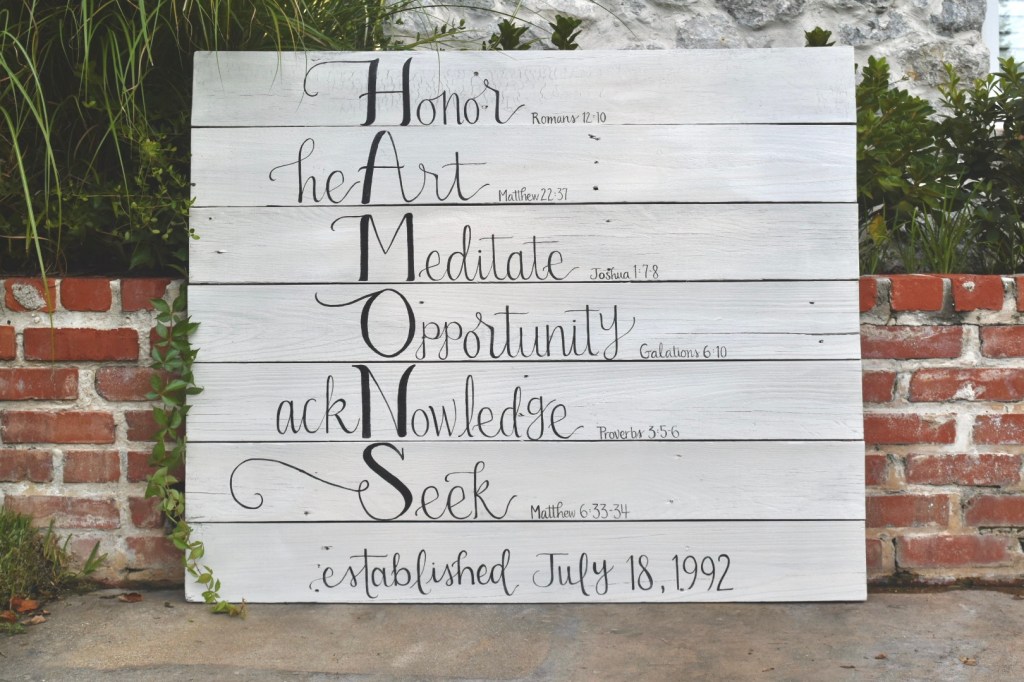 Honor Romans 12·10
heArt Matthew 22·37
Meditate Joshua 1·7-8
Opportunity Galations 6·10
ackNowledge Proverbs 3·5-6
Seek Matthew 6·33-34
established July 18, 1992